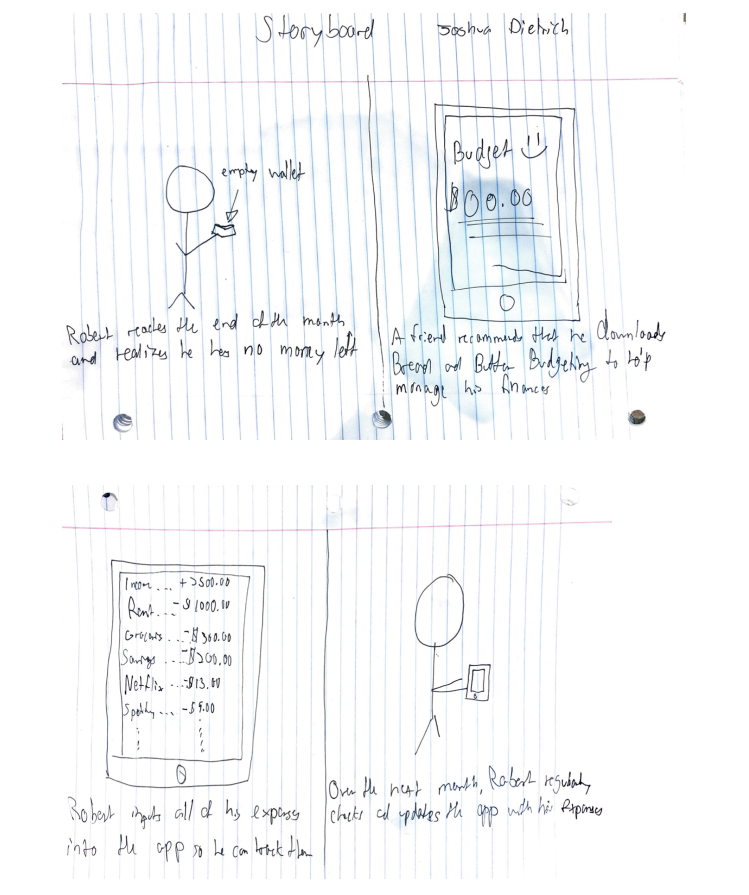 Storyboard Joshua Dietrich
empty wallet
Robert reaches the end of the month
and realizes he has no money left
Budget
$00.00
A friend recommends that he downloads
Bread and Butter Budgeting to help
manage his finances
Income ... +2500.00
Rent ... -$1000.00
Groceries ... -$300.00
Savings ... -$200.00
Netflix ... -$13.00
Spotify ... -$9.00
Robert inputs all of his expenses
into the app so he can track them
Over the next month, Robert regularly
checks and updates the app with his expenses